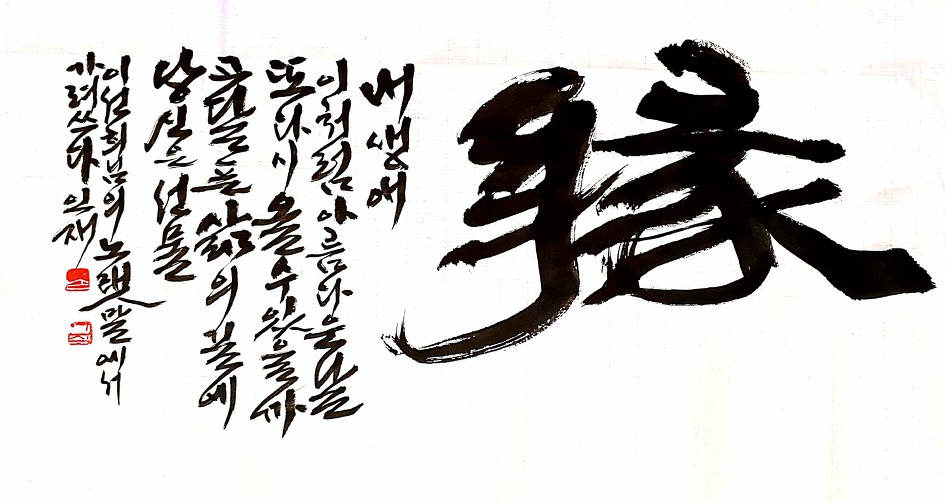 緣
내 생에
이처럼 아름다운 날
또 다시 올 수 있을까
고달픈 삶의 길에
당신은 선물
이선희님의 노랫말에서
가려쓰다